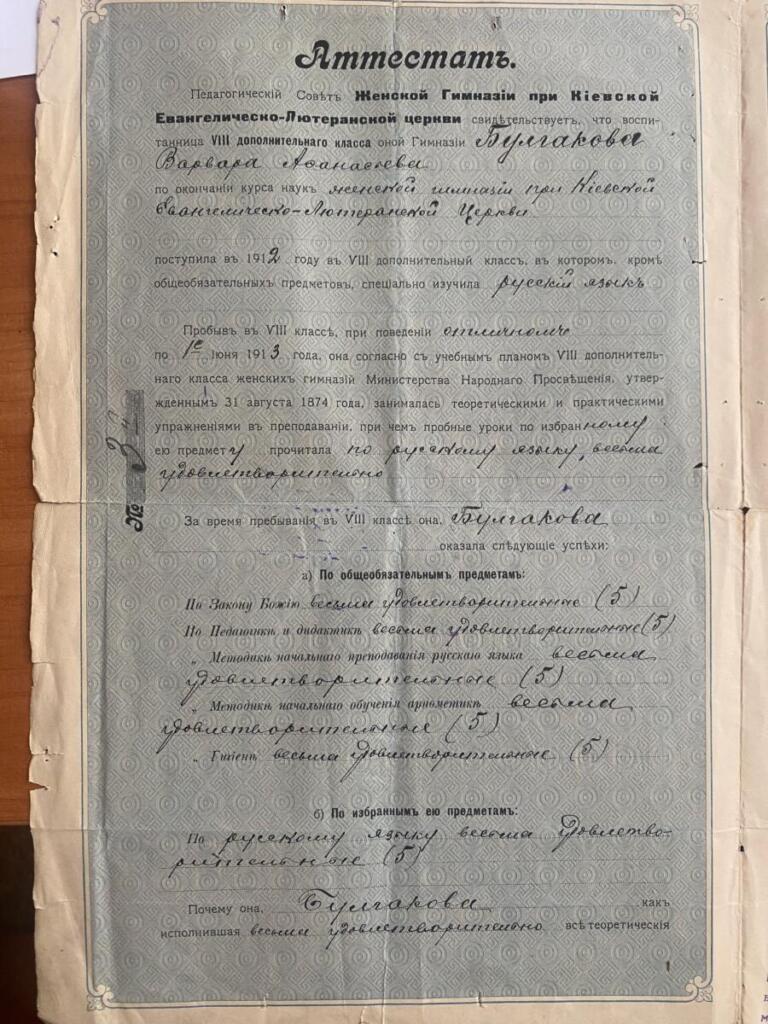 Аттестатъ.
Педагогическій Совѣтъ Женской Гимназіи при Кіевской
Евангелическо-Лютеранской церкви свидѣтельствуетъ, что воспи-
танница VIII дополнительнаго класса оной Гимназіи Булгакова
Варвара Аѳанасьева
по окончаніи курса наукъ женской гимназіи при Кіевской
Евангелическо-Лютеранской Церкви
поступила въ 1912 году въ VIII дополнительный классъ, въ которомъ, кромѣ
общеобязательныхъ предметовъ, спеціально изучила русскій языкъ
Пробывъ въ VIII классѣ, при поведеніи отличномъ
по 1е Іюня 1913 года, она согласно съ учебнымъ планомъ VIII дополнитель-
наго класса женскихъ гимназій Министерства Народнаго Просвѣщенія, утвер-
жденнымъ 31 августа 1874 года, занималась теоретическими и практическими
упражненіями въ преподаваніи, при чемъ пробные уроки по избранному
ею предмету прочитала по русскому языку весьма
удовлетворительно
№ 34
За время пребыванія въ VIII классѣ она, Булгакова
оказала слѣдующіе успѣхи:
а) По общеобязательнымъ предметамъ:
По Закону Божію весьма удовлетворительные (5)
По Педагогикѣ и дидактикѣ весьма удовлетворительные (5)
„ Методикѣ начальнаго преподаванія русскаго языка весьма
удовлетворительные (5)
„ Методикѣ начальнаго обученія ариѳметикѣ весьма
удовлетворительные (5)
„ Гигіенѣ весьма удовлетворительные (5)
б) По избраннымъ ею предметамъ:
По русскому языку весьма удовлетво-
рительные (5)
Почему она, Булгакова какъ
исполнившая весьма удовлетворительно всѣ теоретическія